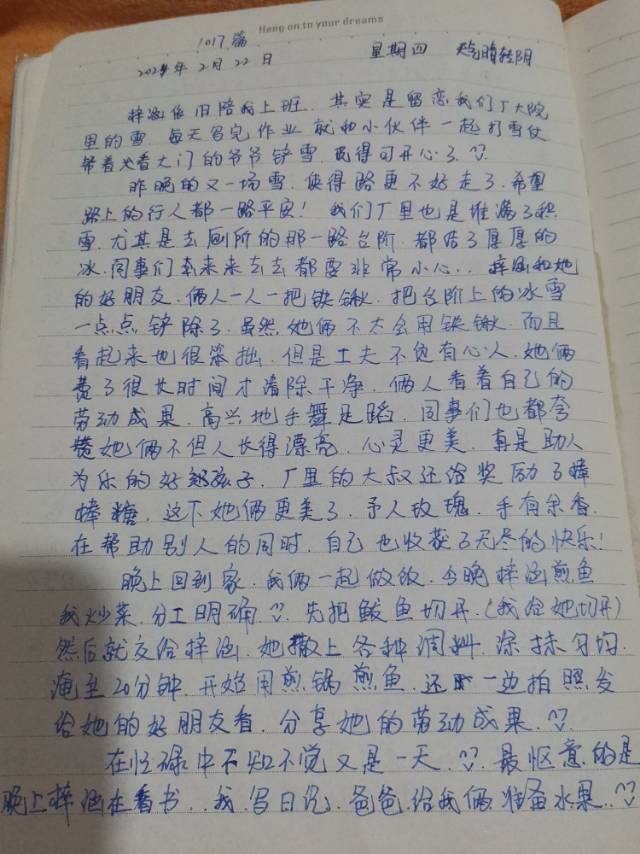 Hang on to your dreams
1017篇
2024年2月22日 星期四 天气晴转阴
梓涵依旧陪我上班.其实是留恋我们厂大院
里的雪.每天写完作业就和小伙伴一起打雪仗
帮着看大门的爷爷铲雪.玩得可开心了.
昨晚的又一场雪.使得路更不好走了.希望
路上的行人都一路平安!我们厂里也是堆满了积
雪.尤其是去厕所的那一路台阶.都结了厚厚的
冰.同事们来来去去都要非常小心..梓涵和她
的好朋友.俩人一人一把铁锹.把台阶上的冰雪
一点点铲除了.虽然她俩不太会用铁锹.而且
看起来也很笨拙.但是工夫不负有心人.她俩
费了很长时间才清除干净.俩人看着自己的
劳动成果.高兴地手舞足蹈.同事们也都夸
赞她俩不但人长得漂亮.心灵更美.真是助人
为乐的好孩子.厂里的大叔还给奖励了棒
棒糖.这下她俩更美了.予人玫瑰.手有余香.
在帮助别人的同时.自己也收获了无尽的快乐!
晚上回到家.我俩一起做饭.今晚梓涵煎鱼
我炒菜.分工明确.先把鲅鱼切开.(我给她切开)
然后就交给梓涵.她撒上各种调料.涂抹匀均.
淹至20分钟.开始用煎锅煎鱼.还一边拍照发
给她的好朋友看.分享她的劳动成果.
在忙碌中不知不觉又是一天.最惬意的是
晚上梓涵在看书..我写日记.爸爸给我俩准备水果..